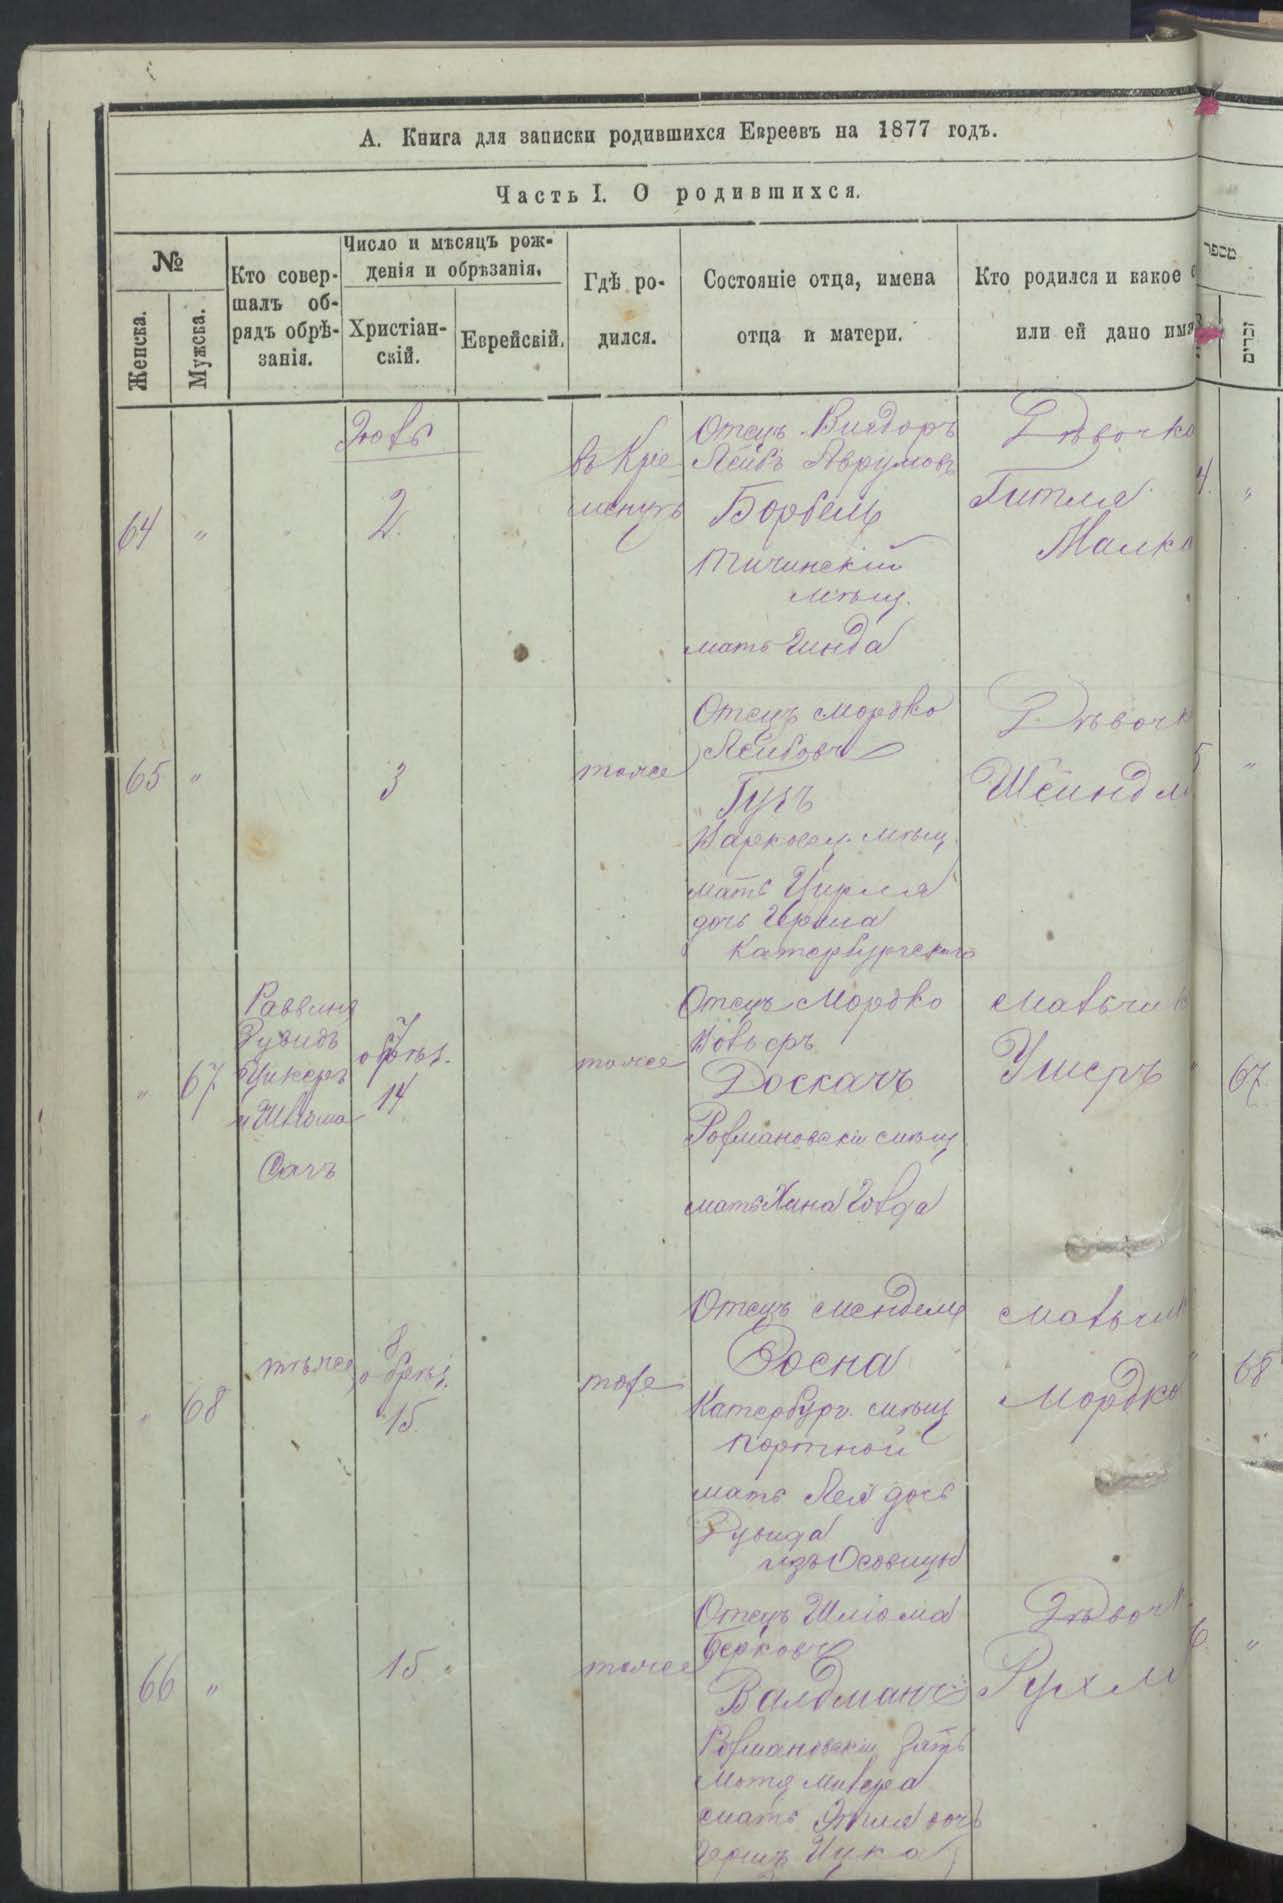 А. Книга для записки родившихся Евреевъ на 1877 годъ.
Часть I. О родившихся.
№
Женска.
Мужска.
Кто совер-
шалъ об-
рядъ обрѣ-
занія.
Число и мѣсяцъ рож-
денія и обрѣзанія.
Христіан-
скій.
Еврейскій.
Гдѣ ро-
дился.
Состояніе отца, имена
отца и матери.
Кто родился и какое
или ей дано имя
מספר
זכרים
64
"
2
въ Кре
менцѣ
Отецъ
Лейбъ Аврумовъ
мѣщ.
мать Гинда
Дѣвочка
Гитля
Малка
4.
"
65
"
3
тоже
Отецъ Мордко
Лейбовъ
мѣщ.
мать Цирля
дочь
Катербургскаго
Дѣвочк
Шейндля
5
"
"
67
Раввинъ
Дувидъ
Цукеръ
и Шлома
Сачъ
7
обрѣз.
14
тоже
Отецъ Мордко
Доскачъ
Рохмановскій мѣщ
мать Хана Голда
мальчик
Ушеръ
"
67
"
68
тѣже
8
обрѣз.
15.
тоже
Отецъ Мендель
Росна
Катербург. мѣщ
портной
мать Лея дочь
Дувида
изъ Осовицы
мальчик
Мордко
"
68
66
"
15
тоже
Отецъ Шліома
Берковъ
Валдманъ
Рохмановскій зать
мать Этля дочь
Дѣвоч
Рухл
6
"